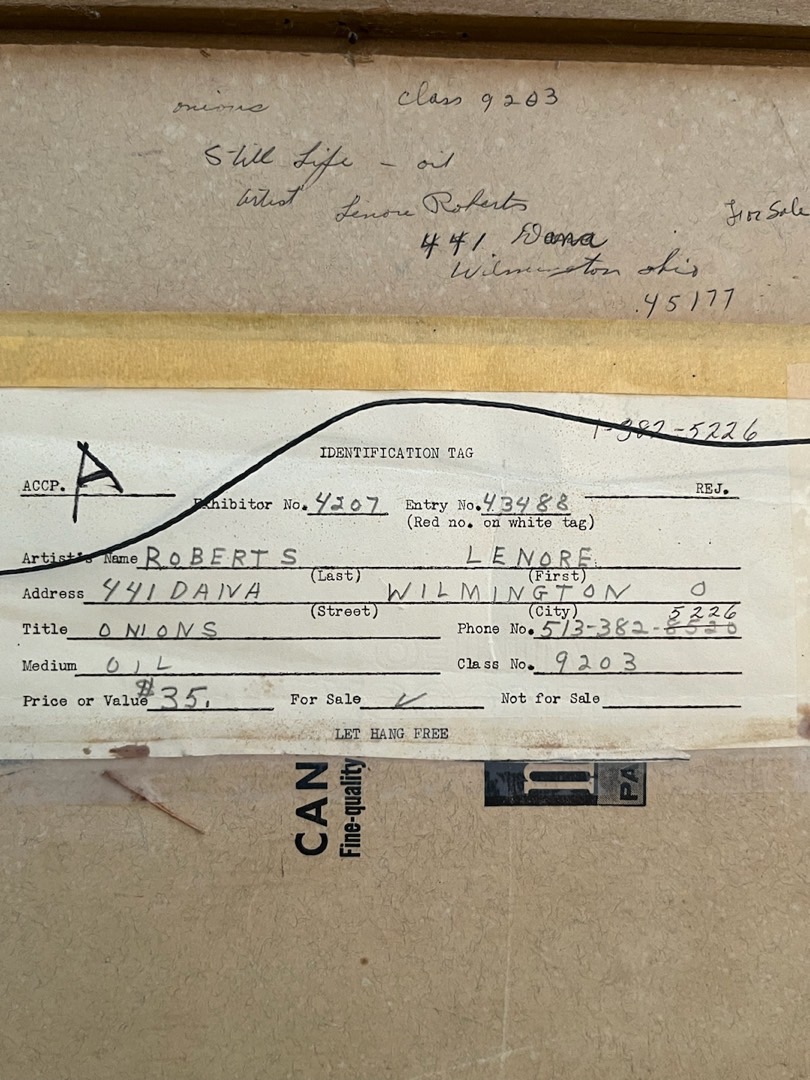 onions class 9203
Still Life - oil
artist Lenore Roberts For Sale
441 Dana
Wilmington ohio
45177
1-382-5226
IDENTIFICATION TAG
ACCP. A REJ.
Exhibitor No. 4207 Entry No. 43488
(Red no. on white tag)
Artist's Name ROBERTS LENORE
(Last) (First)
Address 441 DANA WILMINGTON O
(Street) (City) 5226
Title ONIONS Phone No. 513-382-8520
Medium OIL Class No. 9203
Price or Value $35. For Sale ✓ Not for Sale
LET HANG FREE
CAN
Fine-quality
PA